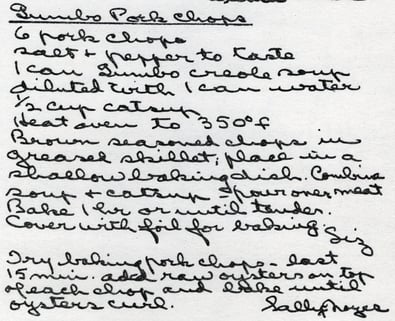 Gumbo Pork Chops
6 pork chops
salt + pepper to taste
1 can Gumbo creole soup
diluted with 1 can water
1/2 cup catsup
Heat oven to 350°f
Brown seasoned chops in
greased skillet; place in a
shallow baking dish. Combine
soup + catsup + pour over meat
Bake 1 hr or until tender.
Cover with foil for baking
Siz
Try baking pork chops - last
15 min. add raw oysters on top
of each chop and bake until
oysters curl.
Sally